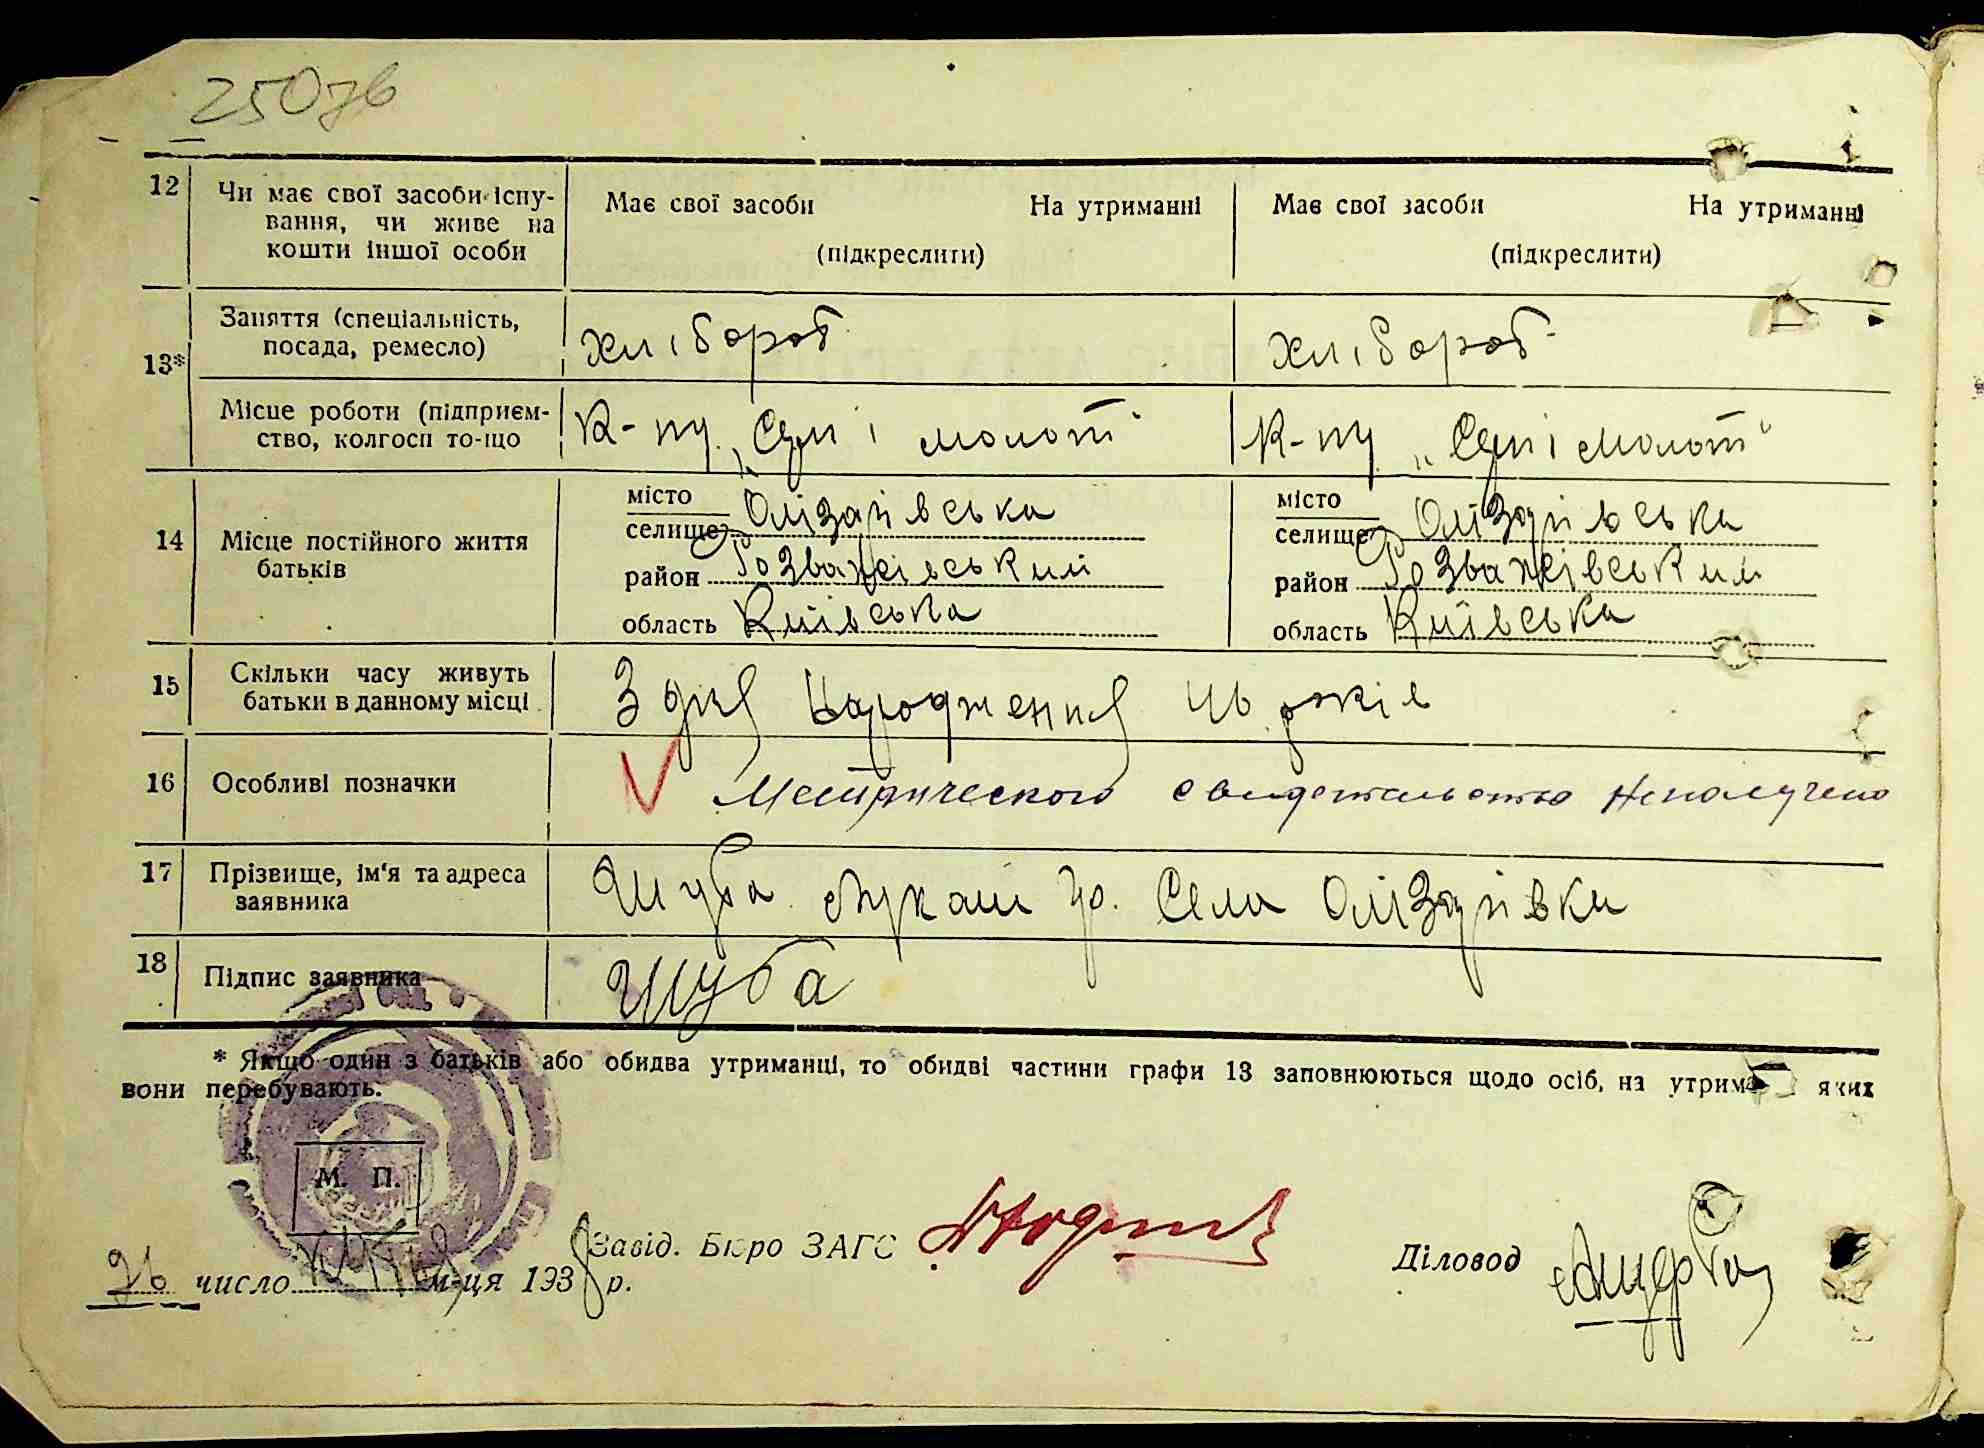 250зв
12 Чи має свої засоби існу- Має свої засоби На утриманні Має свої засоби На утриманні
вання, чи живе на
кошти іншої особи (підкреслити) (підкреслити)
Заняття (спеціальність,
посада, ремесло) хлібороб хлібороб
13*
Місце роботи (підприєм- К-пу „Серп і молот" К-пу „Серп і молот"
ство, колгосп то-що
місто місто
селище Олізарівська селище Олізарівська
14 Місце постійного життя
батьків
район Розважівський район Розважівський
область Київська область Київська
15 Скільки часу живуть
батьки в данному місці З дня народження років
16 Особливі позначки Метрического свидетельство Неполучено
17 Прізвище, ім'я та адреса
заявника Шуба Лукаш гр. Села Олізарівки
18 Підпис заявника Шуба
* Якщо один з батьків або обидва утриманці, то обидві частини графи 13 заповнюються щодо осіб, на утрим яких
вони перебувають.
М. П.
Завід. Бюро ЗАГС Діловод
26 число м-ця 1938 р.